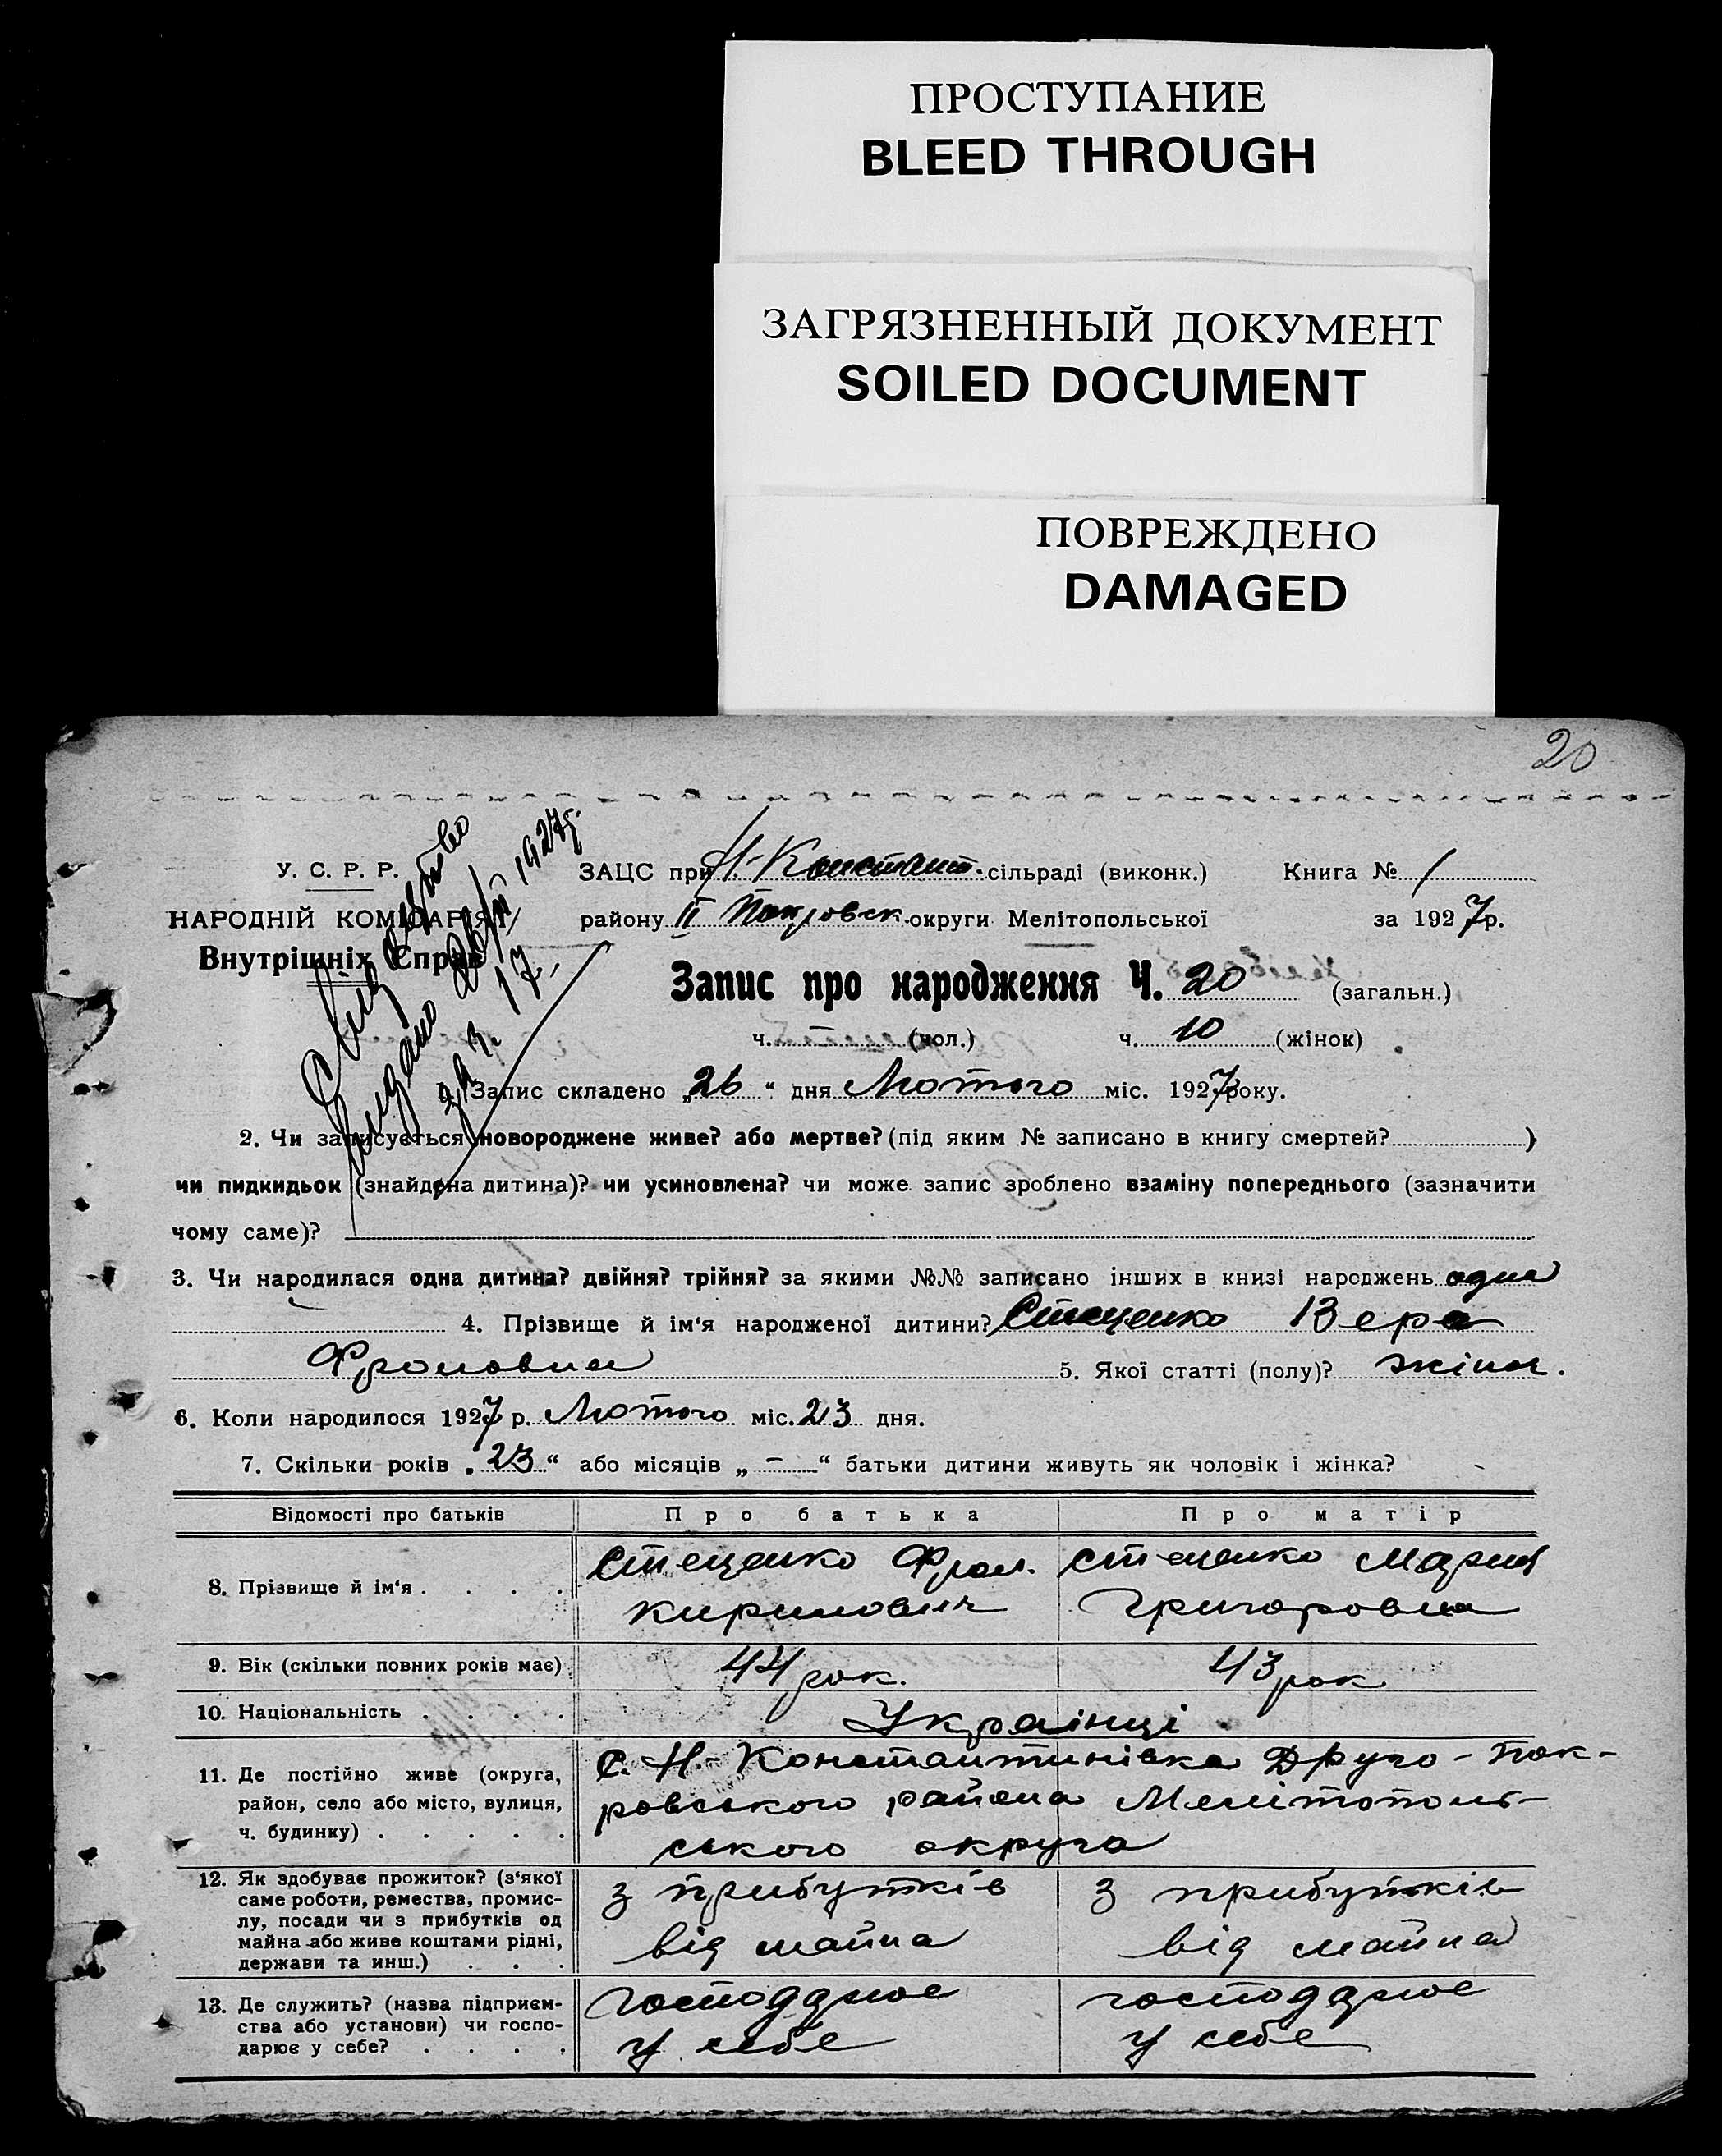 ПРОСТУПАНИЕ
BLEED THROUGH
ЗАГРЯЗНЕННЫЙ ДОКУМЕНТ
SOILED DOCUMENT
ПОВРЕЖДЕНО
DAMAGED
20
У. С. Р. Р.
НАРОДНІЙ КОМІСАРІЯТ
Внутрішніх Справ
Видано 26/II 1927г.
ЗАЦС при Н-Констант. сільраді (виконк.) Книга № 1
району II Покровськ. округи Мелітопольської за 1927р.
Запис про народження Ч. 20 (загальн.)
ч. — (чол.) ч. 10 (жінок)
1. Запис складено „26“ дня Лютого міс. 1927 року.
2. Чи записується новороджене живе? або мертве? (під яким № записано в книгу смертей? )
чи пидкидьок (знайдена дитина)? чи усиновлена? чи може запис зроблено взаміну попереднього (зазначити
чому саме)?
3. Чи народилася одна дитина? двійня? трійня? за якими №№ записано інших в книзі народжень одна
4. Прізвище й ім‘я народженої дитини? Стеценко Вера
Фроловна 5. Якої статті (полу)? жіноч.
6. Коли народилося 1927 р. Лютого міс. 23 дня.
7. Скільки років „23“ або місяців „ — “ батьки дитини живуть як чоловік і жінка?
Відомості про батьків Про батька Про матір
8. Прізвище й ім‘я . . . . Стеценко Фрол. Стеценко Мария
Кирилович Григоровна
9. Вік (скільки повних років має) 44 рок. 43 рок
10. Національність . . . . Українці
11. Де постійно живе (округа, С. Н-Константинівка Друго-Пок-
район, село або місто, вулиця, ровського района Мелітополь-
ч. будинку) . . . . . ського округа
12. Як здобуває прожиток? (з‘якої
саме роботи, ремества, промис- з прибутків з прибутків
лу, посади чи з прибутків од
майна або живе коштами рідні, від майна від майна
держави та инш.) . . .
13. Де служить? (назва підприєм- господарює господарює
ства або установи) чи госпо-
дарює у себе? . . . . у себе у себе